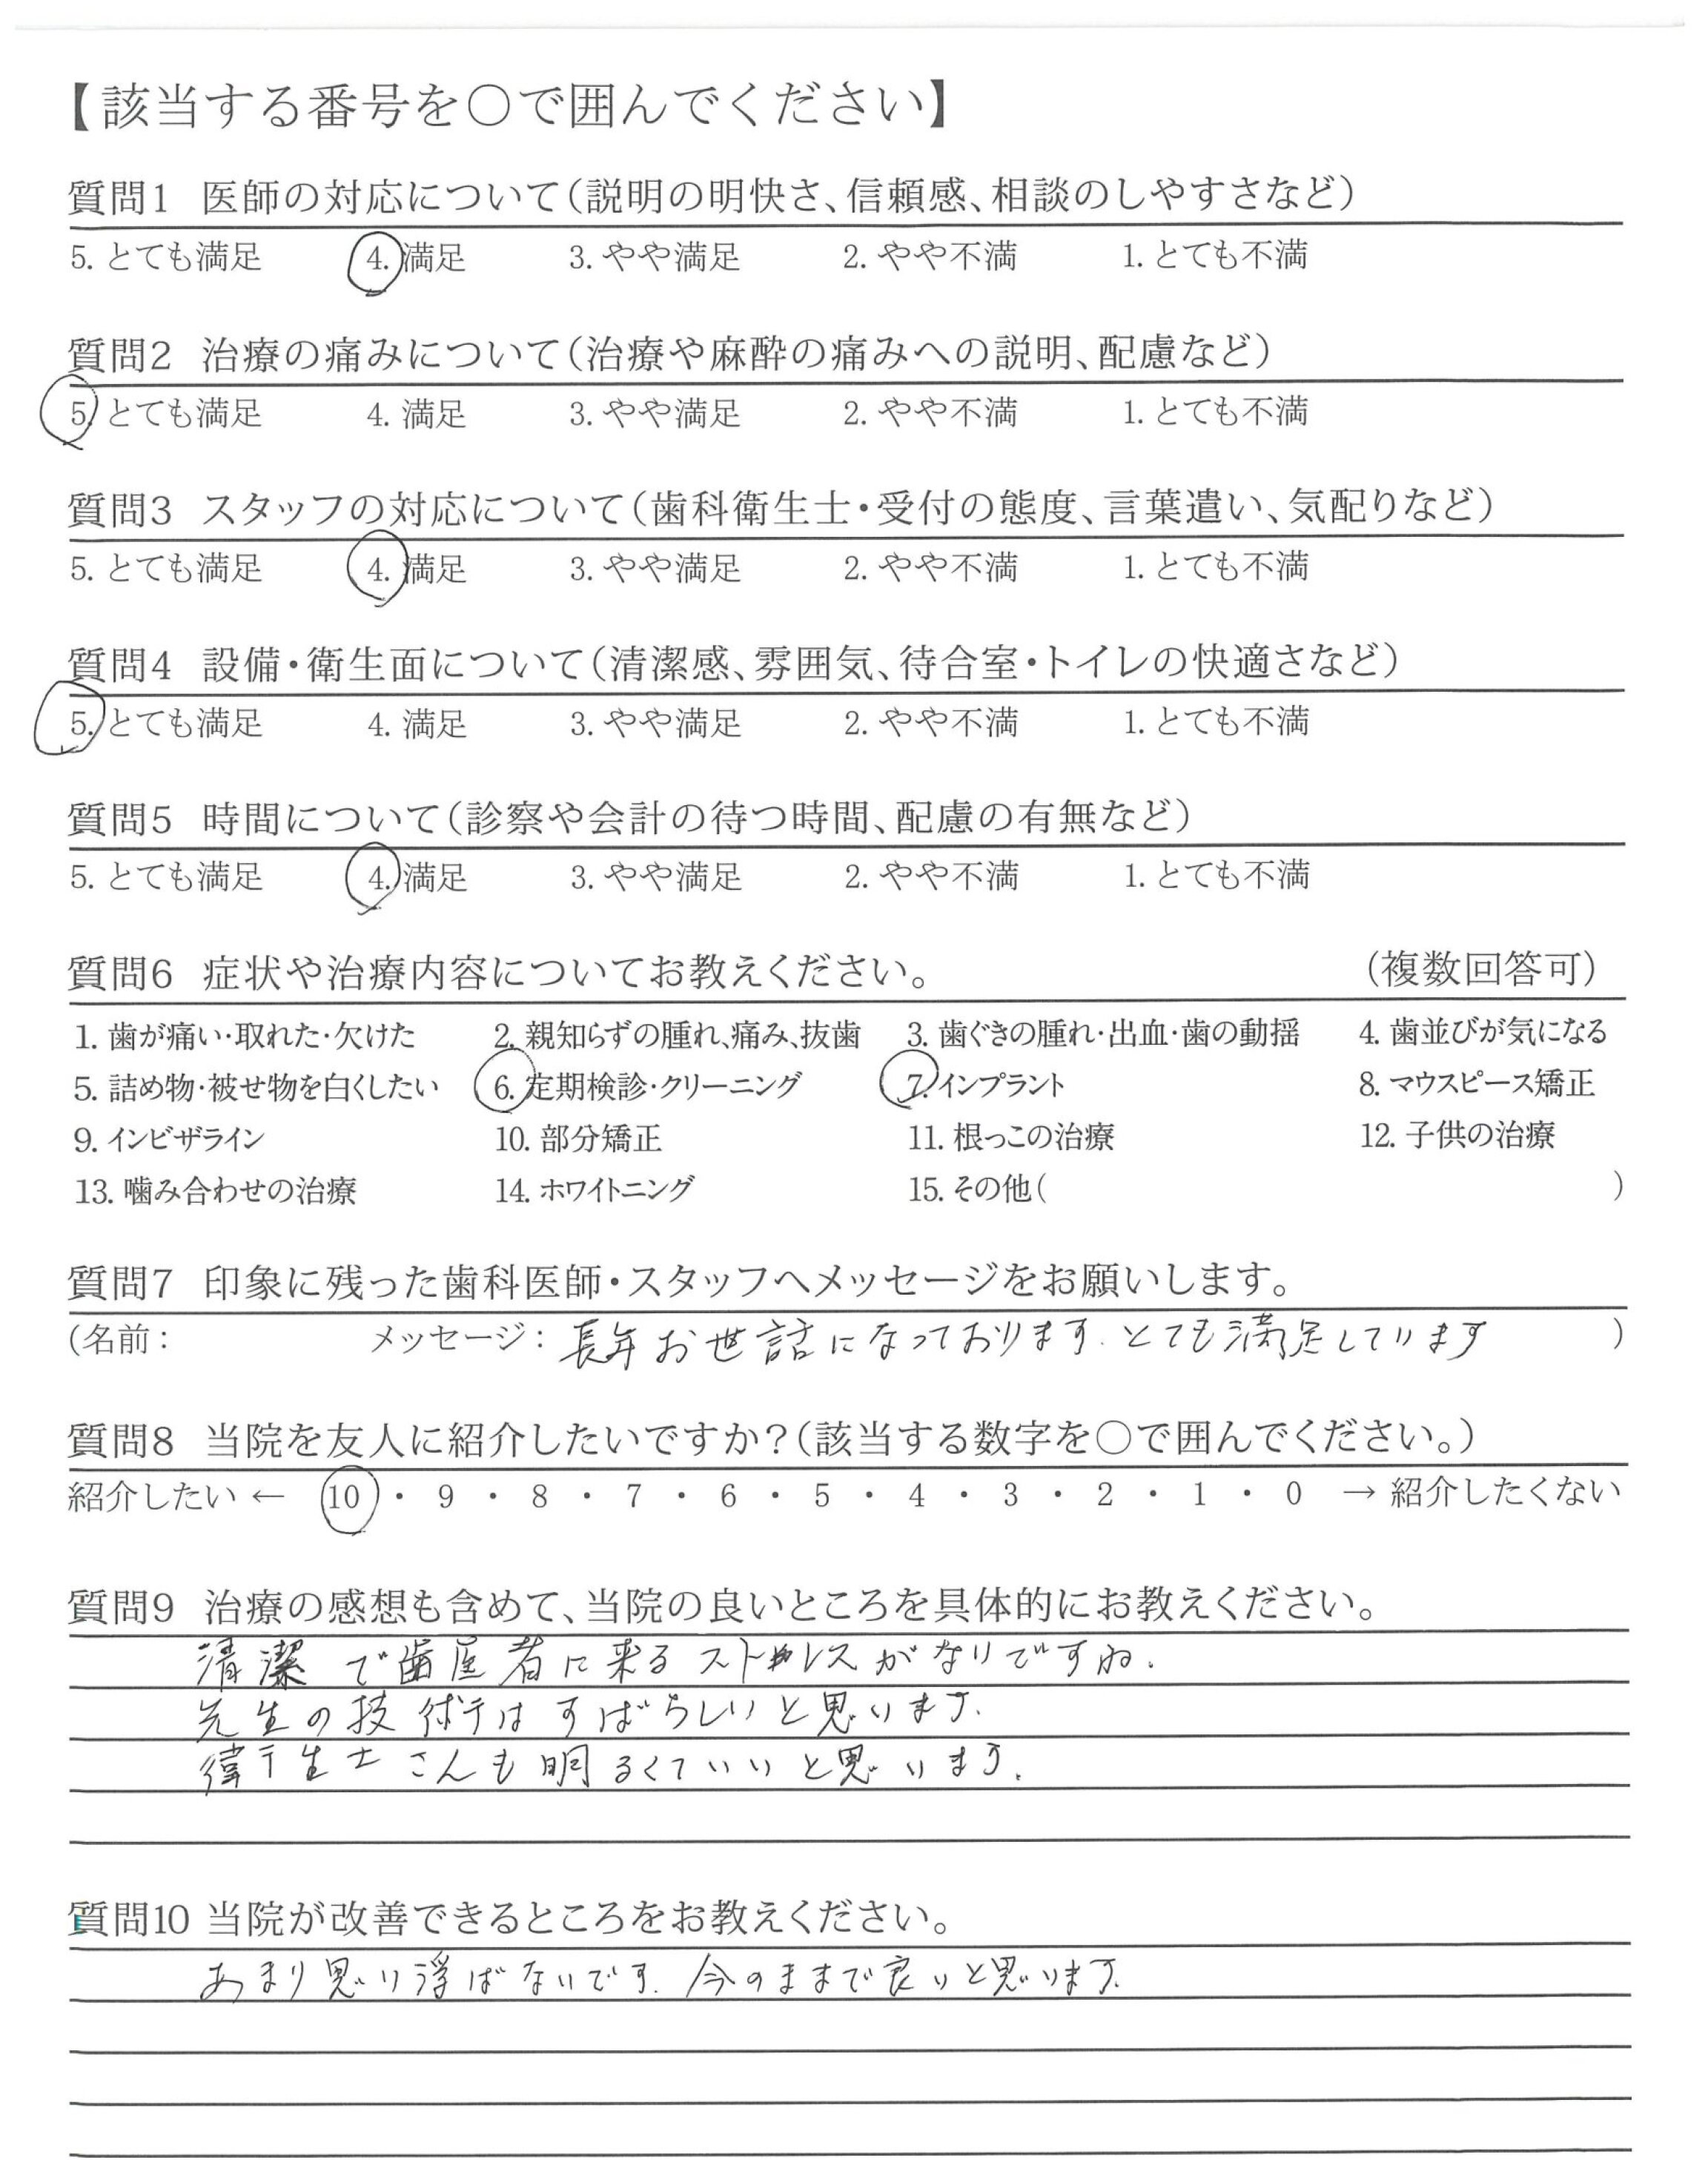 【該当する番号を○で囲んでください】
質問1 医師の対応について(説明の明快さ、信頼感、相談のしやすさなど)
5. とても満足 4. 満足 3. やや満足 2. やや不満 1. とても不満
質問2 治療の痛みについて(治療や麻酔の痛みへの説明、配慮など)
5. とても満足 4. 満足 3. やや満足 2. やや不満 1. とても不満
質問3 スタッフの対応について(歯科衛生士・受付の態度、言葉遣い、気配りなど)
5. とても満足 4. 満足 3. やや満足 2. やや不満 1. とても不満
質問4 設備・衛生面について(清潔感、雰囲気、待合室・トイレの快適さなど)
5. とても満足 4. 満足 3. やや満足 2. やや不満 1. とても不満
質問5 時間について(診察や会計の待つ時間、配慮の有無など)
5. とても満足 4. 満足 3. やや満足 2. やや不満 1. とても不満
質問6 症状や治療内容についてお教えください。 (複数回答可)
1. 歯が痛い・取れた・欠けた 2. 親知らずの腫れ、痛み、抜歯 3. 歯ぐきの腫れ・出血・歯の動揺 4. 歯並びが気になる
5. 詰め物・被せ物を白くしたい 6. 定期検診・クリーニング 7. インプラント 8. マウスピース矯正
9. インビザライン 10. 部分矯正 11. 根っこの治療 12. 子供の治療
13. 噛み合わせの治療 14. ホワイトニング 15. その他( )
質問7 印象に残った歯科医師・スタッフへメッセージをお願いします。
(名前: メッセージ: 長年お世話になっております. とても満足しています )
質問8 当院を友人に紹介したいですか?(該当する数字を○で囲んでください。)
紹介したい ← 10 ・ 9 ・ 8 ・ 7 ・ 6 ・ 5 ・ 4 ・ 3 ・ 2 ・ 1 ・ 0 → 紹介したくない
質問9 治療の感想も含めて、当院の良いところを具体的にお教えください。
清潔で歯医者に来るストレスがないですね.
先生の技術はすばらしいと思います.
衛生士さんも明るくていいと思います.
質問10 当院が改善できるところをお教えください。
あまり思い浮ばないです. 今のままで良いと思います.